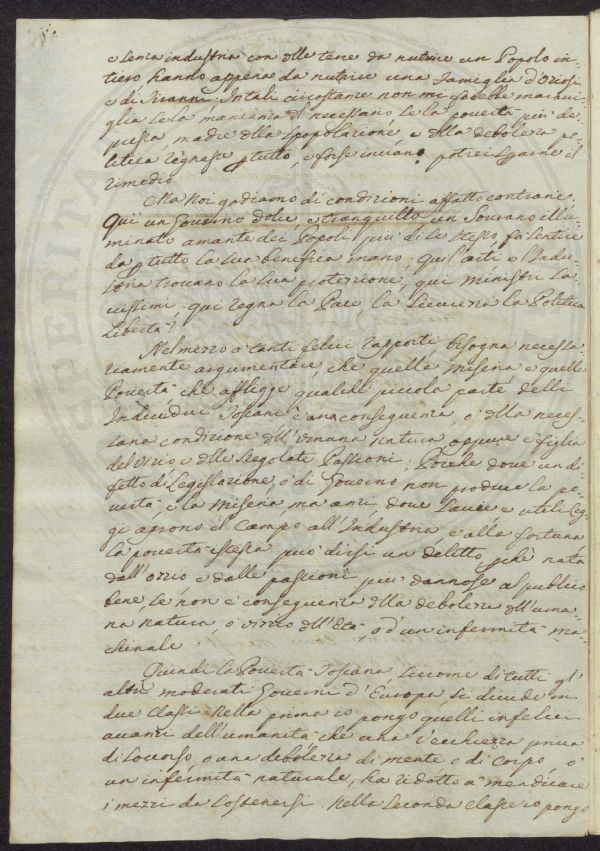 e senza industria con delle terre da nutrire un Popolo in-
tiero hando appena da nutrire una famiglia d'Oziosi
e di Tiranni. In tali circostanze non mi farebbe maravi-
glia se la mancanza del necessario se la povertà più de-
pressa, madre della spopolazione e della debolezza po-
litica regnasse p tutto, e forse invano potrei sperarne il
rimedio.
Ma Noi godiamo di condizioni affatto contrarie.
Qui un Governo dolce, e tranquillo un Sovrano illu-
minato amante dei Popoli più di se stesso fa sentire
da p tutto la sua benefica mano: qui l'arti e l'Indu-
stria trovano la sua protezione, qui Ministri Sa-
vissimi: qui regna la Pace, la Sicurezza la Politica
Libertà.
Nel mezzo a tanti felici rapporti bisogna necessa-
riamente argumentare che quella Miseria e quella
Povertà che affligge qualche piccola parte delli
Individui Toscani è una conseguenza, o della neces-
saria condizione dell'umana Natura oppure è figlia
del vizio e delle sregolate Passioni; Poiche dove un di-
fetto di Legislazione, o di Governo non produce la po-
vertà, e la Miseria, ma anzi dove Savie e utili Leg-
gi aprono il Campo all'Industria, e alla fortuna
la povertà istessa può dirsi un delitto, pchè nata
dall'ozio e dalle passioni più dannose al pubblico
bene, se non è conseguenza della debolezza dell'uma-
na natura, o vizio dell'Età, o d'un infermità ma-
chinale.
Quindi la Povertà Toscana, siccome di tutti gl'
altri moderati Governi d'Europa, si divide in
due Classi. Nella prima io pongo quelli infelici
avanzi dell'umanità che una Vecchiezza priva
di soccorso, o una debolezza di mente o di corpo, o
un infermità naturale, ha ridotto a mendicare
i mezzi da sostenersi. Nella seconda classe io pongo